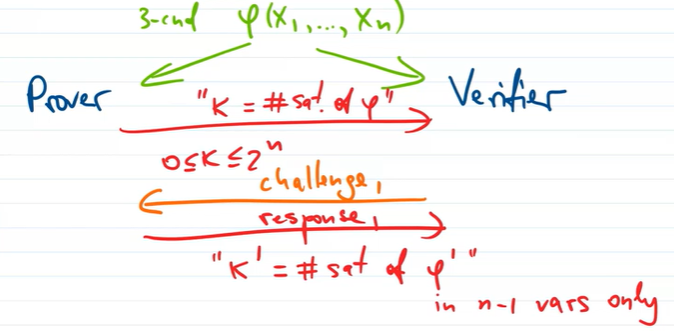 3-cnf φ(x₁,...,xₙ)
Prover "K = #sat. of φ" Verifier
0≤K≤2ⁿ
challenge₁
response₁
"K' = #sat of φ'"
in n-1 vars only